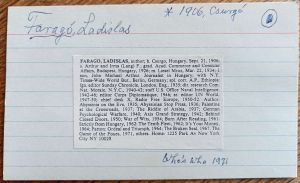 * 1906, Csurgó
Faragó, Ladislas
FARAGO, LADISLAS, author; b. Csurgo, Hungary, Sept. 21, 1906;
s. Arthur and Irma (Lang) F.; grad. Acad. Commerce and Consular
Affairs, Budapest, Hungary, 1926; m. Liesel Mroz, Mar. 22, 1934; 1
son, John Michael Arthur. Journalist in Hungary, with N.Y.
Times-Wide World Bur., Berlin, Germany; spl. corr. A.P., Ethiopia;
fgn. editor Sunday Chronicle, London, Eng., 1935; dir. research Com.
Nat. Morale, N.Y.C., 1940-42; staff U.S. Office Naval Intelligence,
1942-46; editor Corps Diplomatique, 1946; sr. editor UN World,
1947-50; chief desk X, Radio Free Europe, 1950-52. Author:
Abyssinia on the Eve, 1935; Abyssinian Stop Press, 1936; Palestine
at the Crossroads, 1937; The Riddle of Arabia, 1937; German
Psychological Warfare, 1940; Axis Grand Strategy, 1942; Behind
Closed Doors, 1950; War of Wits, 1954; Burn After Reading, 1961;
Strictly from Hungary, 1962; The Tenth Fleet, 1962; It's Your Money,
1964; Patton: Ordeal and Triumph, 1964; The Broken Seal, 1967; The
Game of the Foxes, 1971; others. Home: 1225 Park Av New York
City NY 10028
Who's Who 1971